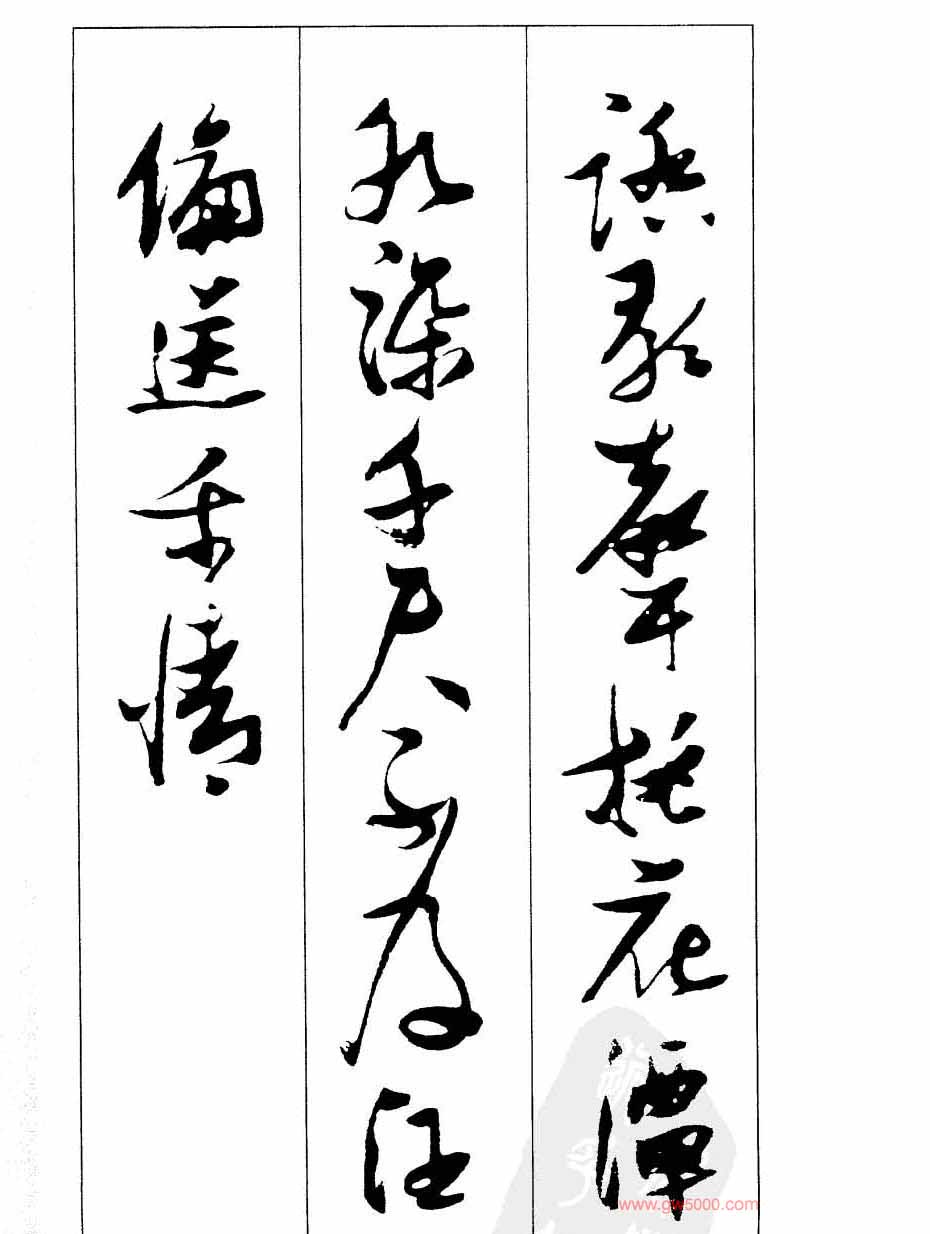 踏歌聲桃花潭
水深千尺不及汪
倫送我情
www.gw5000.com